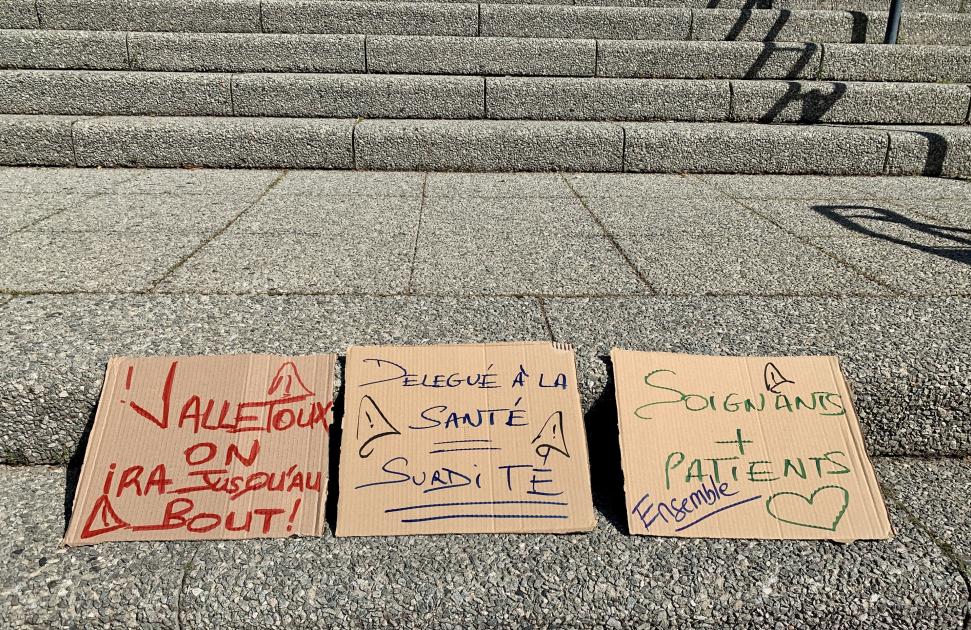 ! VALLETOUX
ON
iRA JUSQU'AU
BOUT!
DELEGUÉ À LA
SANTÉ
SURDiTE
SOIGNANTS
+
PATIENTS
Ensemble